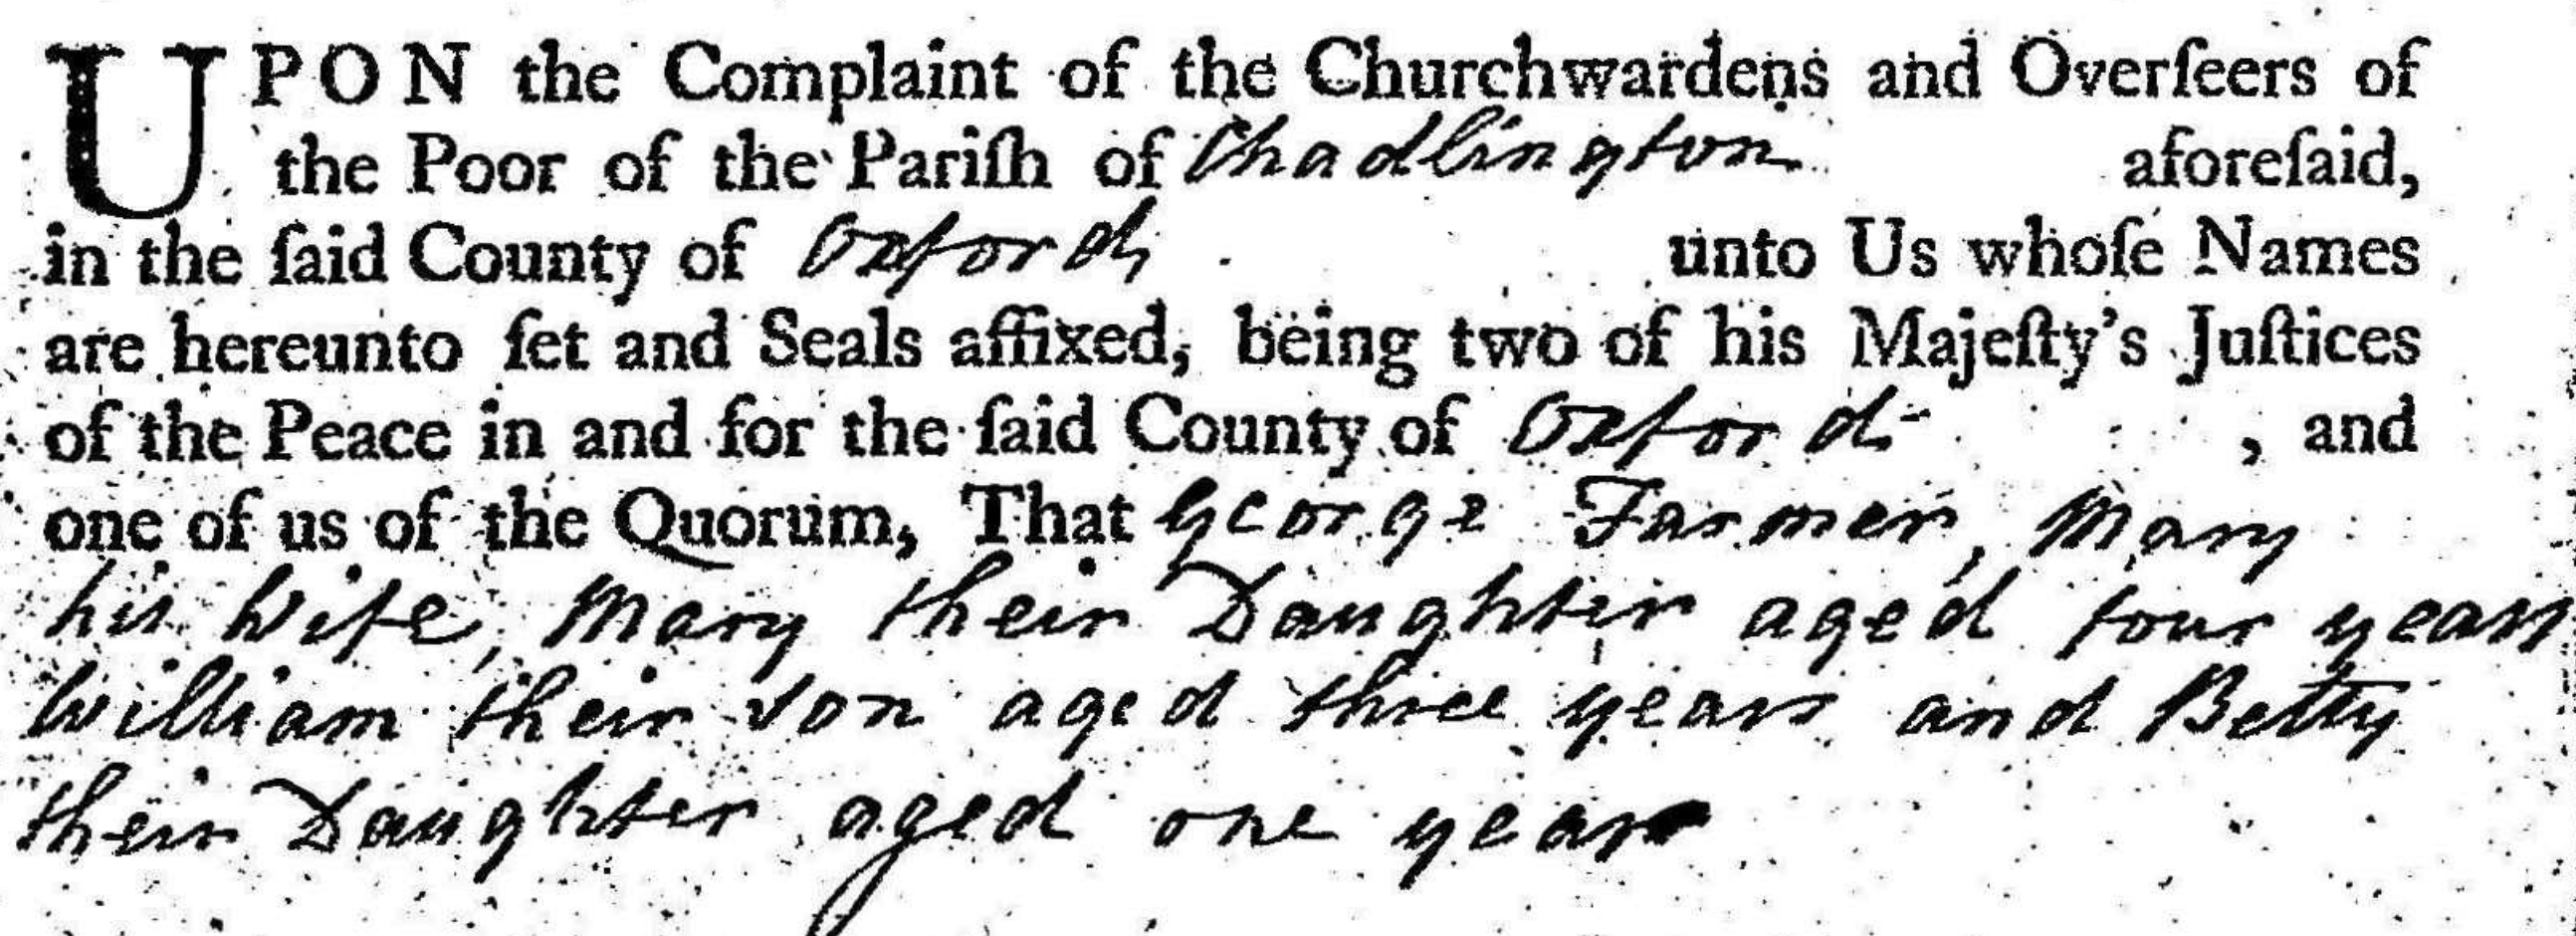 UPON the Complaint of the Churchwardens and Overſeers of
the Poor of the Pariſh of Chadlington aforeſaid,
in the ſaid County of Oxford unto Us whoſe Names
are hereunto ſet and Seals affixed, being two of his Majeſty's Juſtices
of the Peace in and for the ſaid County of Oxford , and
one of us of the Quorum, That George Farmer, Mary
his Wife, Mary their Daughter aged four years
William their son aged three years and Betty
their Daughter aged one year